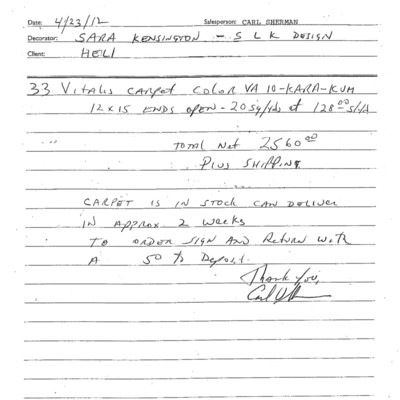 Date: 4/23/12 Salesperson: CARL SHERMAN
Decorator: SARA KENSINGTON - SLK DESIGN
Client: HELI
33 VITALIS CARPET COLOR VA 10-KARA-KUM
12 x 15 ENDS OPEN - 20 sq/yds at 128.00 s/yd
TOTAL Net 2560.00
PLUS SHIPPING
CARPET IS IN STOCK CAN DELIVER
IN APPROX 2 weeks
TO ORDER SIGN AND RETURN WITH
A 50% Deposit.
Thank You,
Carl